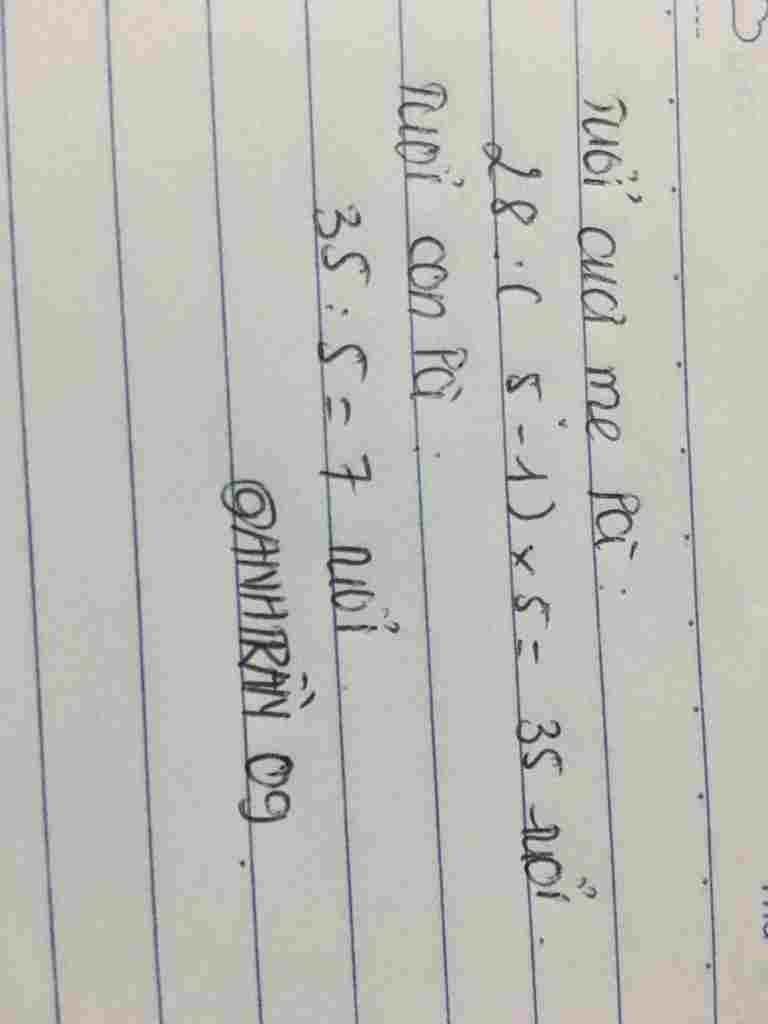 Tuổi của mẹ là:
28 : ( 5 - 1 ) x 5 = 35 tuổi.
Tuổi con là:
35 : 5 = 7 tuổi.
@ANHTRẦN 09.